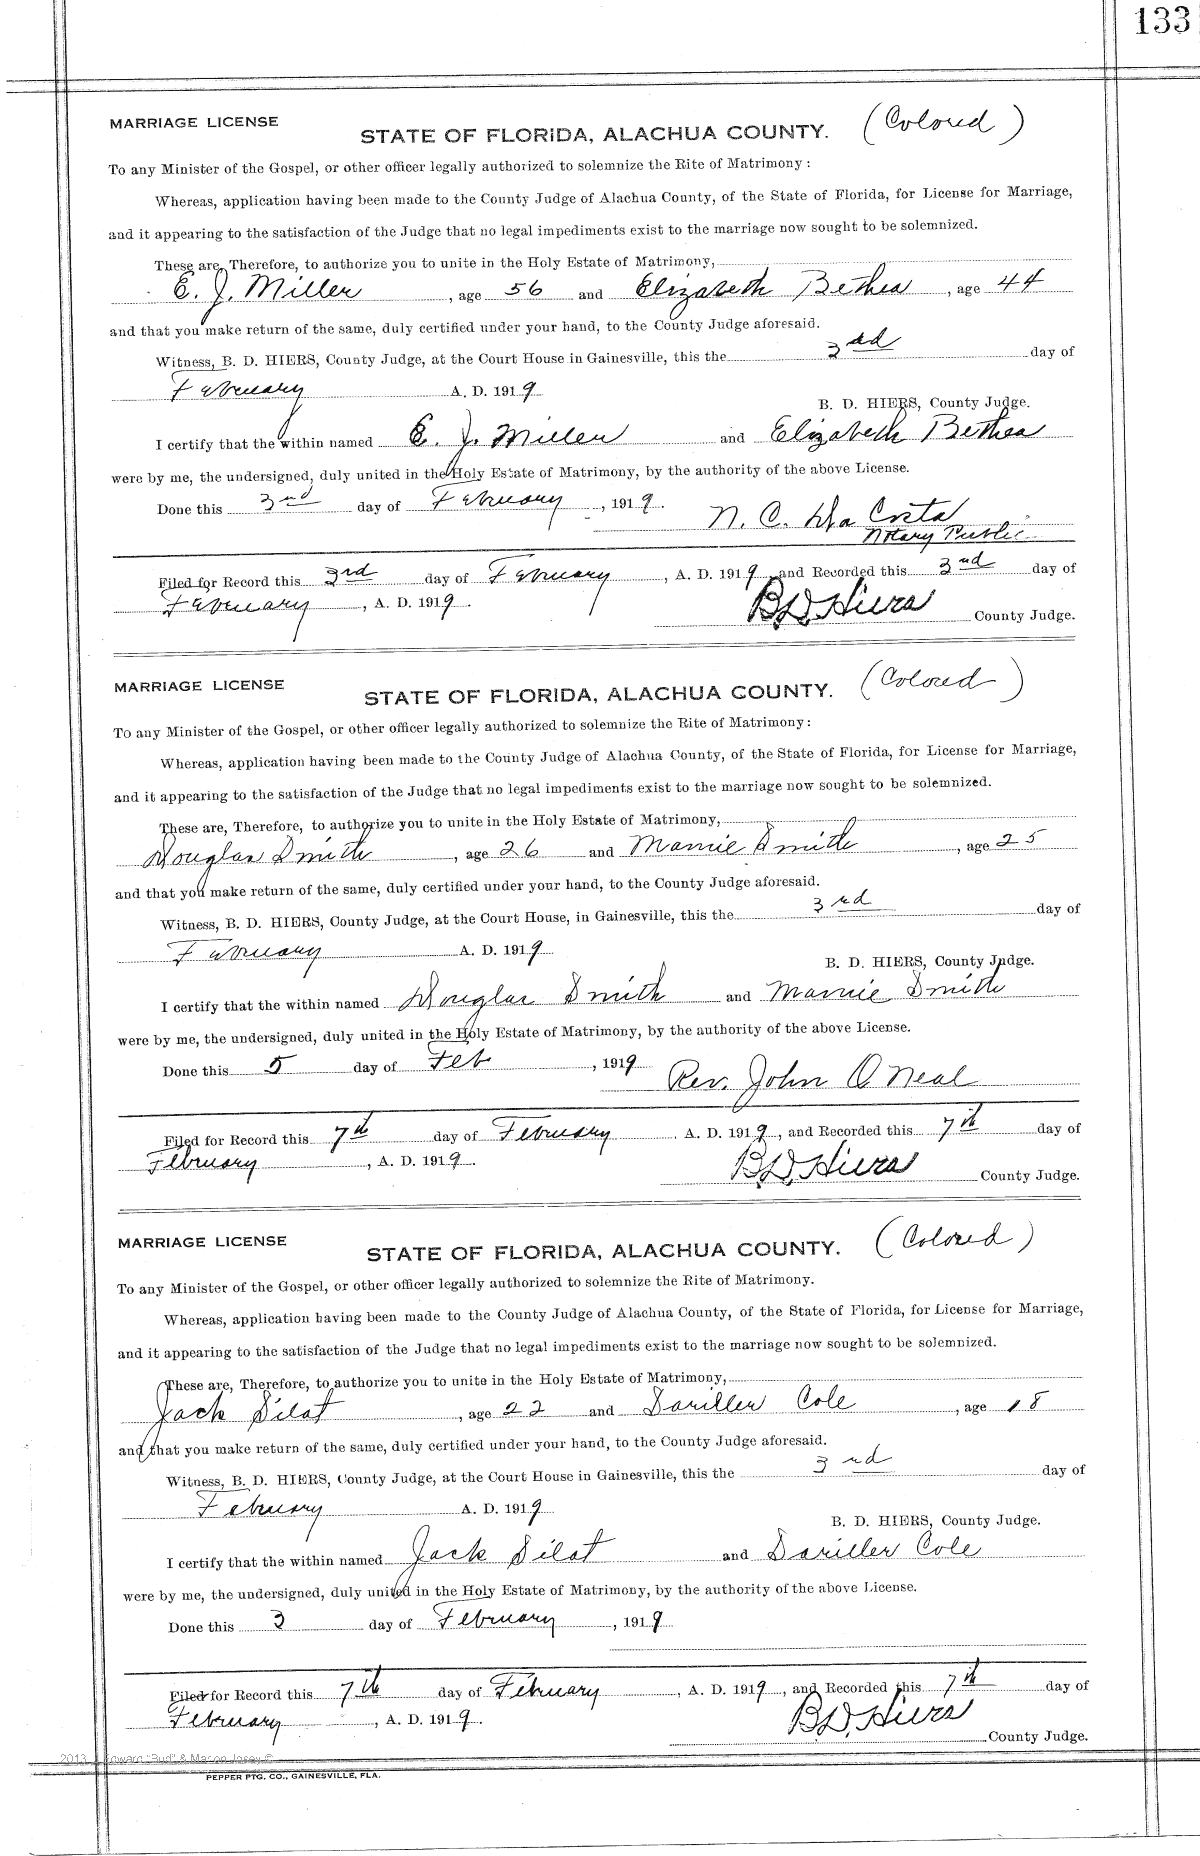 133
MARRIAGE LICENSE
STATE OF FLORIDA, ALACHUA COUNTY. (Colored)
To any Minister of the Gospel, or other officer legally authorized to solemnize the Rite of Matrimony:
Whereas, application having been made to the County Judge of Alachua County, of the State of Florida, for License for Marriage,
and it appearing to the satisfaction of the Judge that no legal impediments exist to the marriage now sought to be solemnized.
These are, Therefore, to authorize you to unite in the Holy Estate of Matrimony,
E. J. Miller, age 56 and Elizabeth Bethea, age 44
and that you make return of the same, duly certified under your hand, to the County Judge aforesaid.
Witness, B. D. HIERS, County Judge, at the Court House in Gainesville, this the 3rd day of
February A. D. 1919
B. D. HIERS, County Judge.
I certify that the within named E. J. Miller and Elizabeth Bethea
were by me, the undersigned, duly united in the Holy Estate of Matrimony, by the authority of the above License.
Done this 3rd day of February, 1919.
N. C. Da Costa
Notary Public
Filed for Record this 3rd day of February, A. D. 1919, and Recorded this 3rd day of
February, A. D. 1919.
B D Hiers County Judge.
MARRIAGE LICENSE
STATE OF FLORIDA, ALACHUA COUNTY. (Colored)
To any Minister of the Gospel, or other officer legally authorized to solemnize the Rite of Matrimony:
Whereas, application having been made to the County Judge of Alachua County, of the State of Florida, for License for Marriage,
and it appearing to the satisfaction of the Judge that no legal impediments exist to the marriage now sought to be solemnized.
These are, Therefore, to authorize you to unite in the Holy Estate of Matrimony,
Douglas Smith, age 26 and Mamie Smith, age 25
and that you make return of the same, duly certified under your hand, to the County Judge aforesaid.
Witness, B. D. HIERS, County Judge, at the Court House, in Gainesville, this the 3rd day of
February A. D. 1919
B. D. HIERS, County Judge.
I certify that the within named Douglas Smith and Mamie Smith
were by me, the undersigned, duly united in the Holy Estate of Matrimony, by the authority of the above License.
Done this 5 day of Feb, 1919
Rev. John O Neal
Filed for Record this 7th day of February A. D. 1919, and Recorded this 7th day of
February, A. D. 1919.
B D Hiers County Judge.
MARRIAGE LICENSE
STATE OF FLORIDA, ALACHUA COUNTY. (Colored)
To any Minister of the Gospel, or other officer legally authorized to solemnize the Rite of Matrimony.
Whereas, application having been made to the County Judge of Alachua County, of the State of Florida, for License for Marriage,
and it appearing to the satisfaction of the Judge that no legal impediments exist to the marriage now sought to be solemnized.
These are, Therefore, to authorize you to unite in the Holy Estate of Matrimony,
Jack Silat, age 22 and Sariller Cole, age 18
and that you make return of the same, duly certified under your hand, to the County Judge aforesaid.
Witness, B. D. HIERS, County Judge, at the Court House in Gainesville, this the 3rd day of
February A. D. 1919
B. D. HIERS, County Judge.
I certify that the within named Jack Silat and Sariller Cole
were by me, the undersigned, duly united in the Holy Estate of Matrimony, by the authority of the above License.
Done this 3 day of February, 1919
Filed for Record this 7th day of February, A. D. 1919, and Recorded this 7th day of
February, A. D. 1919.
B D Hiers County Judge.
2013 "Bud" & Mason ©
PEPPER PTG. CO., GAINESVILLE, FLA.